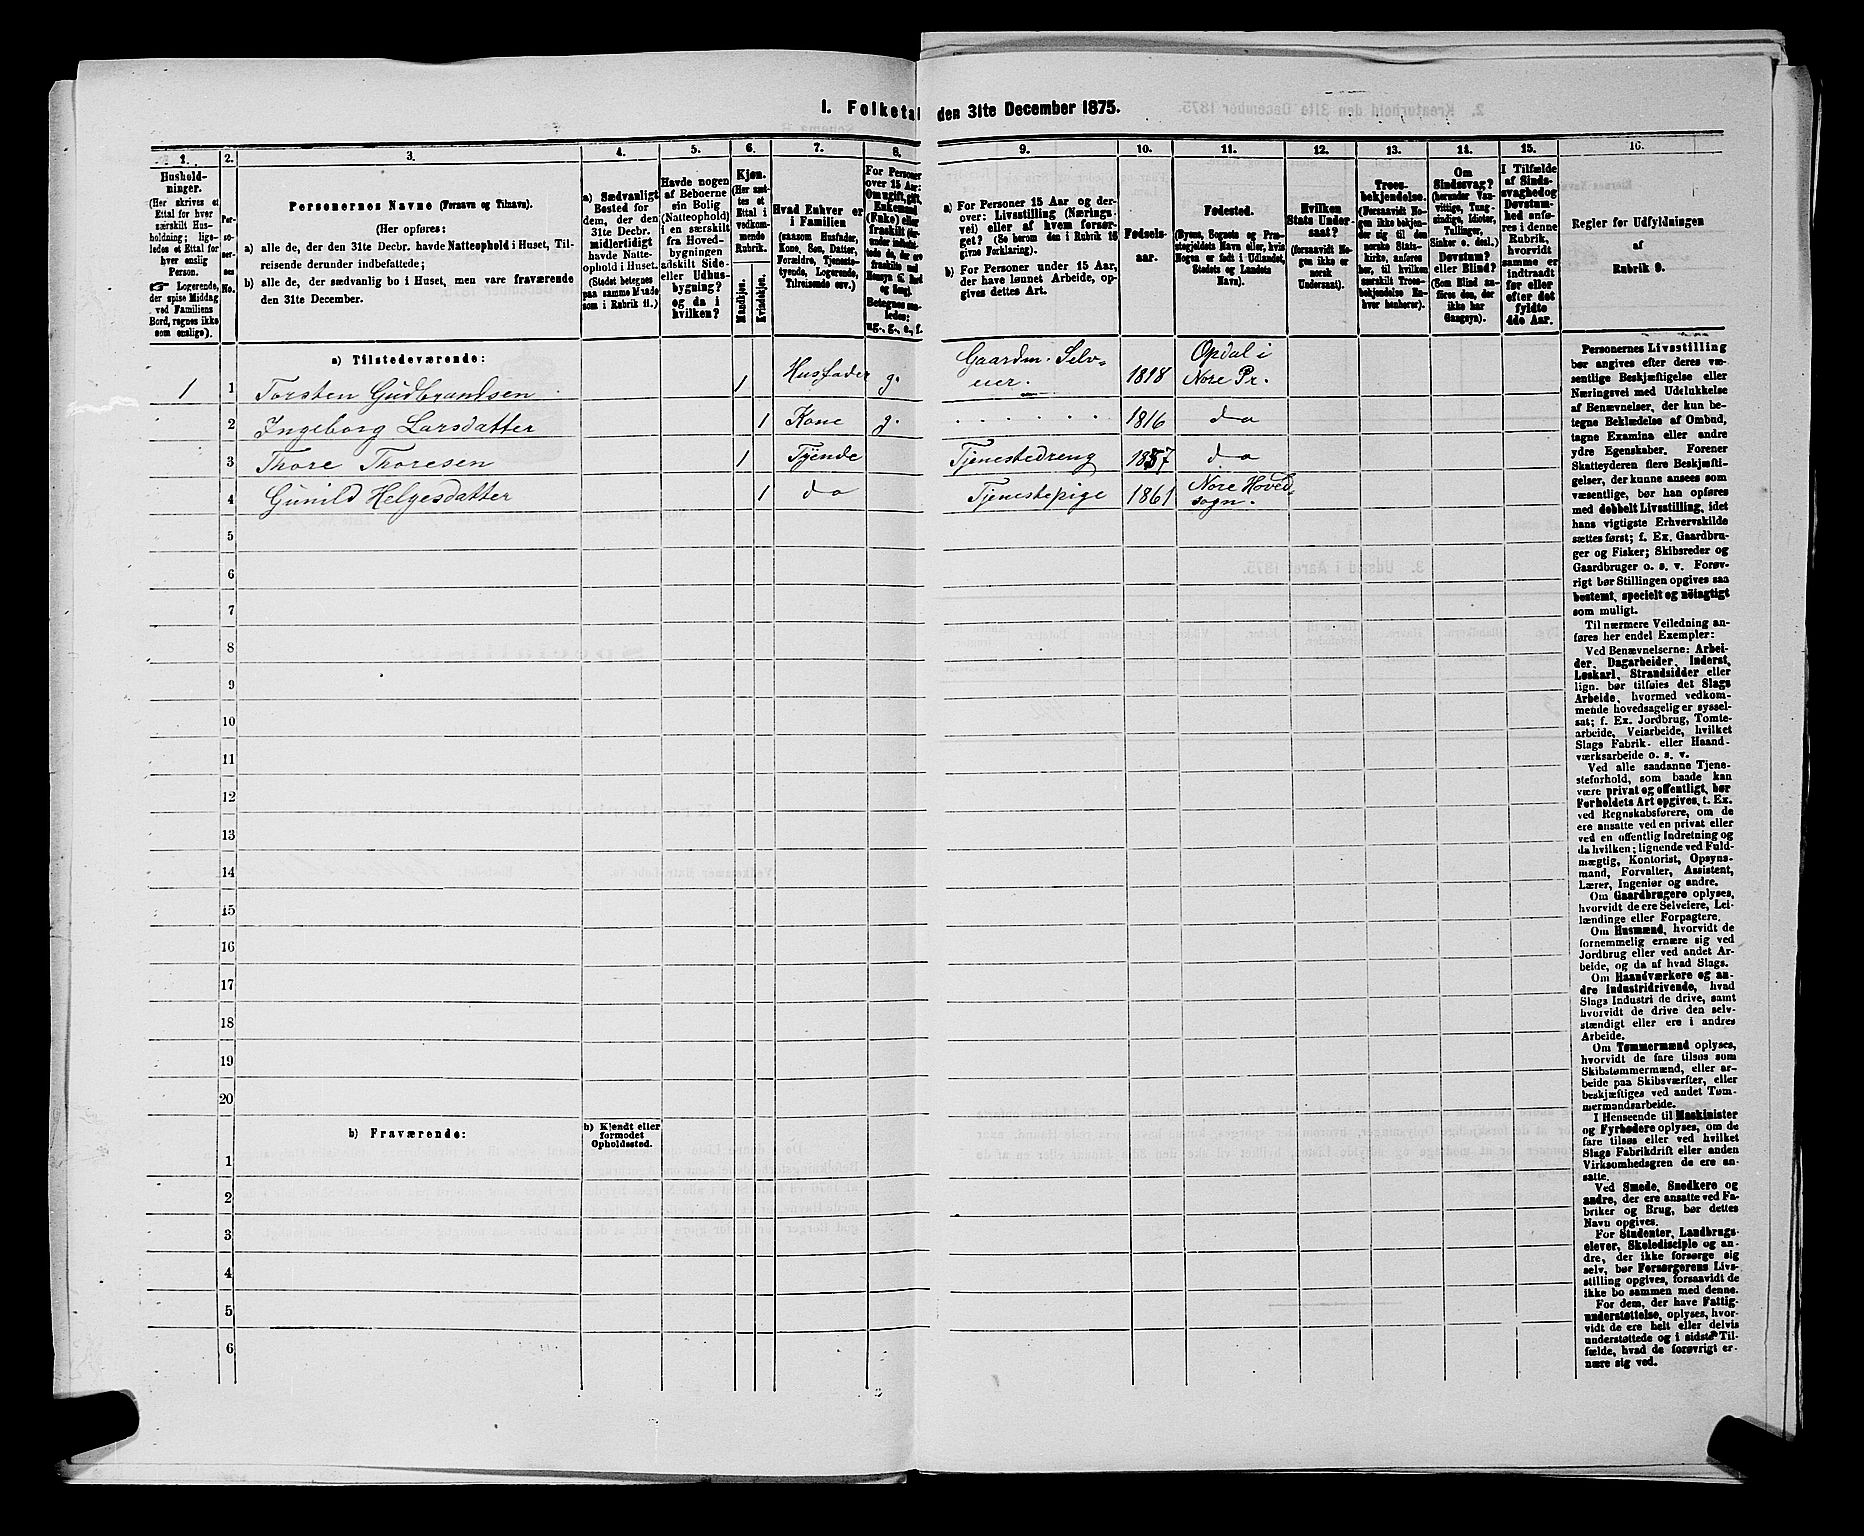 1. Folketal den 31te December 1875.
1. 2. 3. 4. 5. 6. 7. 8. 9. 10. 11. 12. 13. 14. 15. 16.
Hushold-
ninger.
(Her skrives et
Ettal for hver
særskilt Hus-
holdning; lige-
ledes et Ettal for
hver enslig
Person.
☛ Logerende,
der spise Middag
ved Familiens
Bord, regnes ikke
som enslige).
Per-
so-
ner-
nes
No.
Personernes Navne (Fornavn og Tilnavn).
(Her opføres:
a) alle de, der den 31te Decbr. havde Natteophold i Huset, Til-
reisende derunder indbefattede;
b) alle de, der sædvanlig bo i Huset, men vare fraværende
den 31te December.
a) Sædvanligt
Bosted for
dem, der den
31te Decbr.
midlertidigt
havde Natte-
ophold i Huset.
(Stedet betegnes
paa samme Maade
som i Rubrik 11.)
Havde nogen
af Beboerne
sin Bolig
(Natteophold)
i en særskilt
fra Hoved-
bygningen
adskilt Side-
eller Udhus-
bygning?
og da i
hvilken?
Kjøn.
(Her sæt-
tes et
Ettal i
vedkom-
mende
Rubrik.
Mandkjøn.
Kvindekjøn.
Hvad Enhver er
i Familien
(saasom Husfader,
Kone, Søn, Datter,
Forældre, Tjeneste-
tyende, Logerende,
Tilreisende osv.)
For Personer
over 15 Aar:
Om ugift, gift,
Enkemand
(Enke) eller
fraskilt
Betegnes saa-
ledes:
ug., g., e., f.
a) For Personer 15 Aar og der-
over: Livsstilling (Nærings-
vei) eller af hvem forsør-
get? (Se herom den i Rubrik 16
givne Forklaring).
b) For Personer under 15 Aar,
der have lønnet Arbeide, op-
gives dettes Art.
Fødsels-
aar.
Fødested.
(Byens, Sognets og Præ-
stegjeldets Navn eller, hvis
Nogen er født i Udlandet,
Stedets og Landets
Navn).
Hvilken
Stats Under-
saat?
(forsaavidt No-
gen ikke er
norsk
Undersaat).
Troes-
bekjendelse.
(Forsaavidt No-
gen ikke bekjen-
der sig til den
norske Stats-
kirke, anføres
her, til hvilken
særskilt Troes-
bekjendelse En-
hver henhører).
Om
Sindssvag?
(herunder Van-
vittige, Tung-
sindige, Idioter,
Tullinger,
Sinker o. desl.)
Døvstum?
eller Blind?
(Som Blind an-
føres den, der
ikke har
Gangsyn).
I Tilfælde
af Sinds-
svaghed og
Døvstum-
hed anfø-
res i denne
Rubrik,
hvorvidt
samme er
indtraadt
før eller
efter det
fyldte
4de Aar.
Regler for Udfyldningen
af
Rubrik 9.
a) Tilstedeværende:
1 1 Torsten Gudbrandsen 1 Husfader g. Gaardm. Selv-
eier. 1818 Opdal i
Nore Pr.
2 Ingeborg Larsdatter 1 Kone g. . . . . . 1816 do
3 Thore Thoresen 1 Tyende Tjenestedreng 1857 do
4 Gunild Helgesdatter 1 do Tjenestepige 1861 Nore Hoved-
sogn.
5
6
7
8
9
10
11
12
13
14
15
16
17
18
19
20
b) Fraværende:
b) Kjendt eller
formodet
Opholdssted.
1
2
3
4
5
6
Personernes Livsstilling
bør angives efter deres væ-
sentlige Beskjæftigelse eller
Næringsvei med Udelukkelse
af Benævnelser, der kun be-
tegne Beklædelse af Ombud,
tagne Examina eller andre
ydre Egenskaber. Forener
Skatteyderen flere Beskjæfti-
gelser, der kunne ansees som
væsentlige, bør han opføres
med dobbelt Livsstilling, idet
hans vigtigste Erhvervskilde
sættes først; f. Ex. Gaardbru-
ger og Fisker; Skibsreder og
Gaardbruger o. s. v. Forøv-
rigt bør Stillingen opgives saa
bestemt, specielt og nöiagtigt
som muligt.
Til nærmere Veiledning an-
føres her endel Exempler:
Ved Benævnelserne: Arbei-
der, Dagarbeider, Inderst,
Løskarl, Strandsidder eller
lign. bør tilføies det Slags
Arbeide, hvormed vedkom-
mende hovedsagelig er syssel-
sat; f. Ex. Jordbrug, Tomte-
arbeide, Veiarbeide, hvilket
Slags Fabrik- eller Haand-
værksarbeide o. s. v.
Ved alle saadanne Tjene-
steforhold, som baade kan
være privat og offentligt, bør
Forholdets Art opgives, t. Ex.
ved Regnskabsførere, om de
ere ansatte ved en privat eller
ved en offentlig Indretning og
da hvilken; lignende ved Fuld-
mægtig, Kontorist, Opsyns-
mand, Forvalter, Assistent,
Lærer, Ingeniør og andre.
Om Gaardbrugere oplyses,
hvorvidt de ere Selveiere, Lei-
lændinge eller Forpagtere.
Om Husmænd, hvorvidt de
fornemmelig ernære sig ved
Jordbrug eller ved andet Ar-
beide, og da af hvad Slags.
Om Haandværkere og an-
dre Industridrivende, hvad
Slags Industri de drive, samt
hvorvidt de drive den selv-
stændigt eller ere i andres
Arbeide.
Om Tømmermænd oplyses,
hvorvidt de fare tilsøs som
Skibstømmermænd, eller ar-
beide paa Skibsværfter, eller
beskjæftiges ved andet Tøm-
mermandsarbeide.
I Henseende til Maskinister
og Fyrbødere oplyses, om de
fare tilsøs eller ved hvilket
Slags Fabrikdrift eller anden
Virksomhedsgren de ere an-
satte.
Ved Smede, Snedkere og
andre, der ere ansatte ved Fa-
briker og Brug, bør dettes
Navn opgives.
For Studenter, Landbrugs-
elever, Skoledisciple og an-
dre, der ikke forsørge sig
selv, bør Forsørgerens Livs-
stilling opgives, forsaavidt de
ikke bo sammen med denne.
For dem, der have Fattig-
understøttelse, oplyses, hvor-
vidt de ere helt eller delvis
understøttede og i sidste Til-
fælde, hvad de forøvrigt er-
nære sig ved.